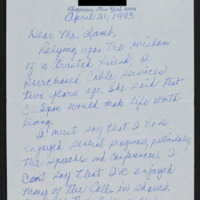 Chappaqua, New York 10514
April 21, 1993
Dear Mr. Lamb,
Relying upon the wisdom
of a trusted friend, I
purchased Cable services
two years ago. She said that
C-Span would make life worth
living.
I must say that I have
enjoyed several programs, particularly
the speeches and conferences. I
can't say that I've enjoyed
many of the Call-in shows.